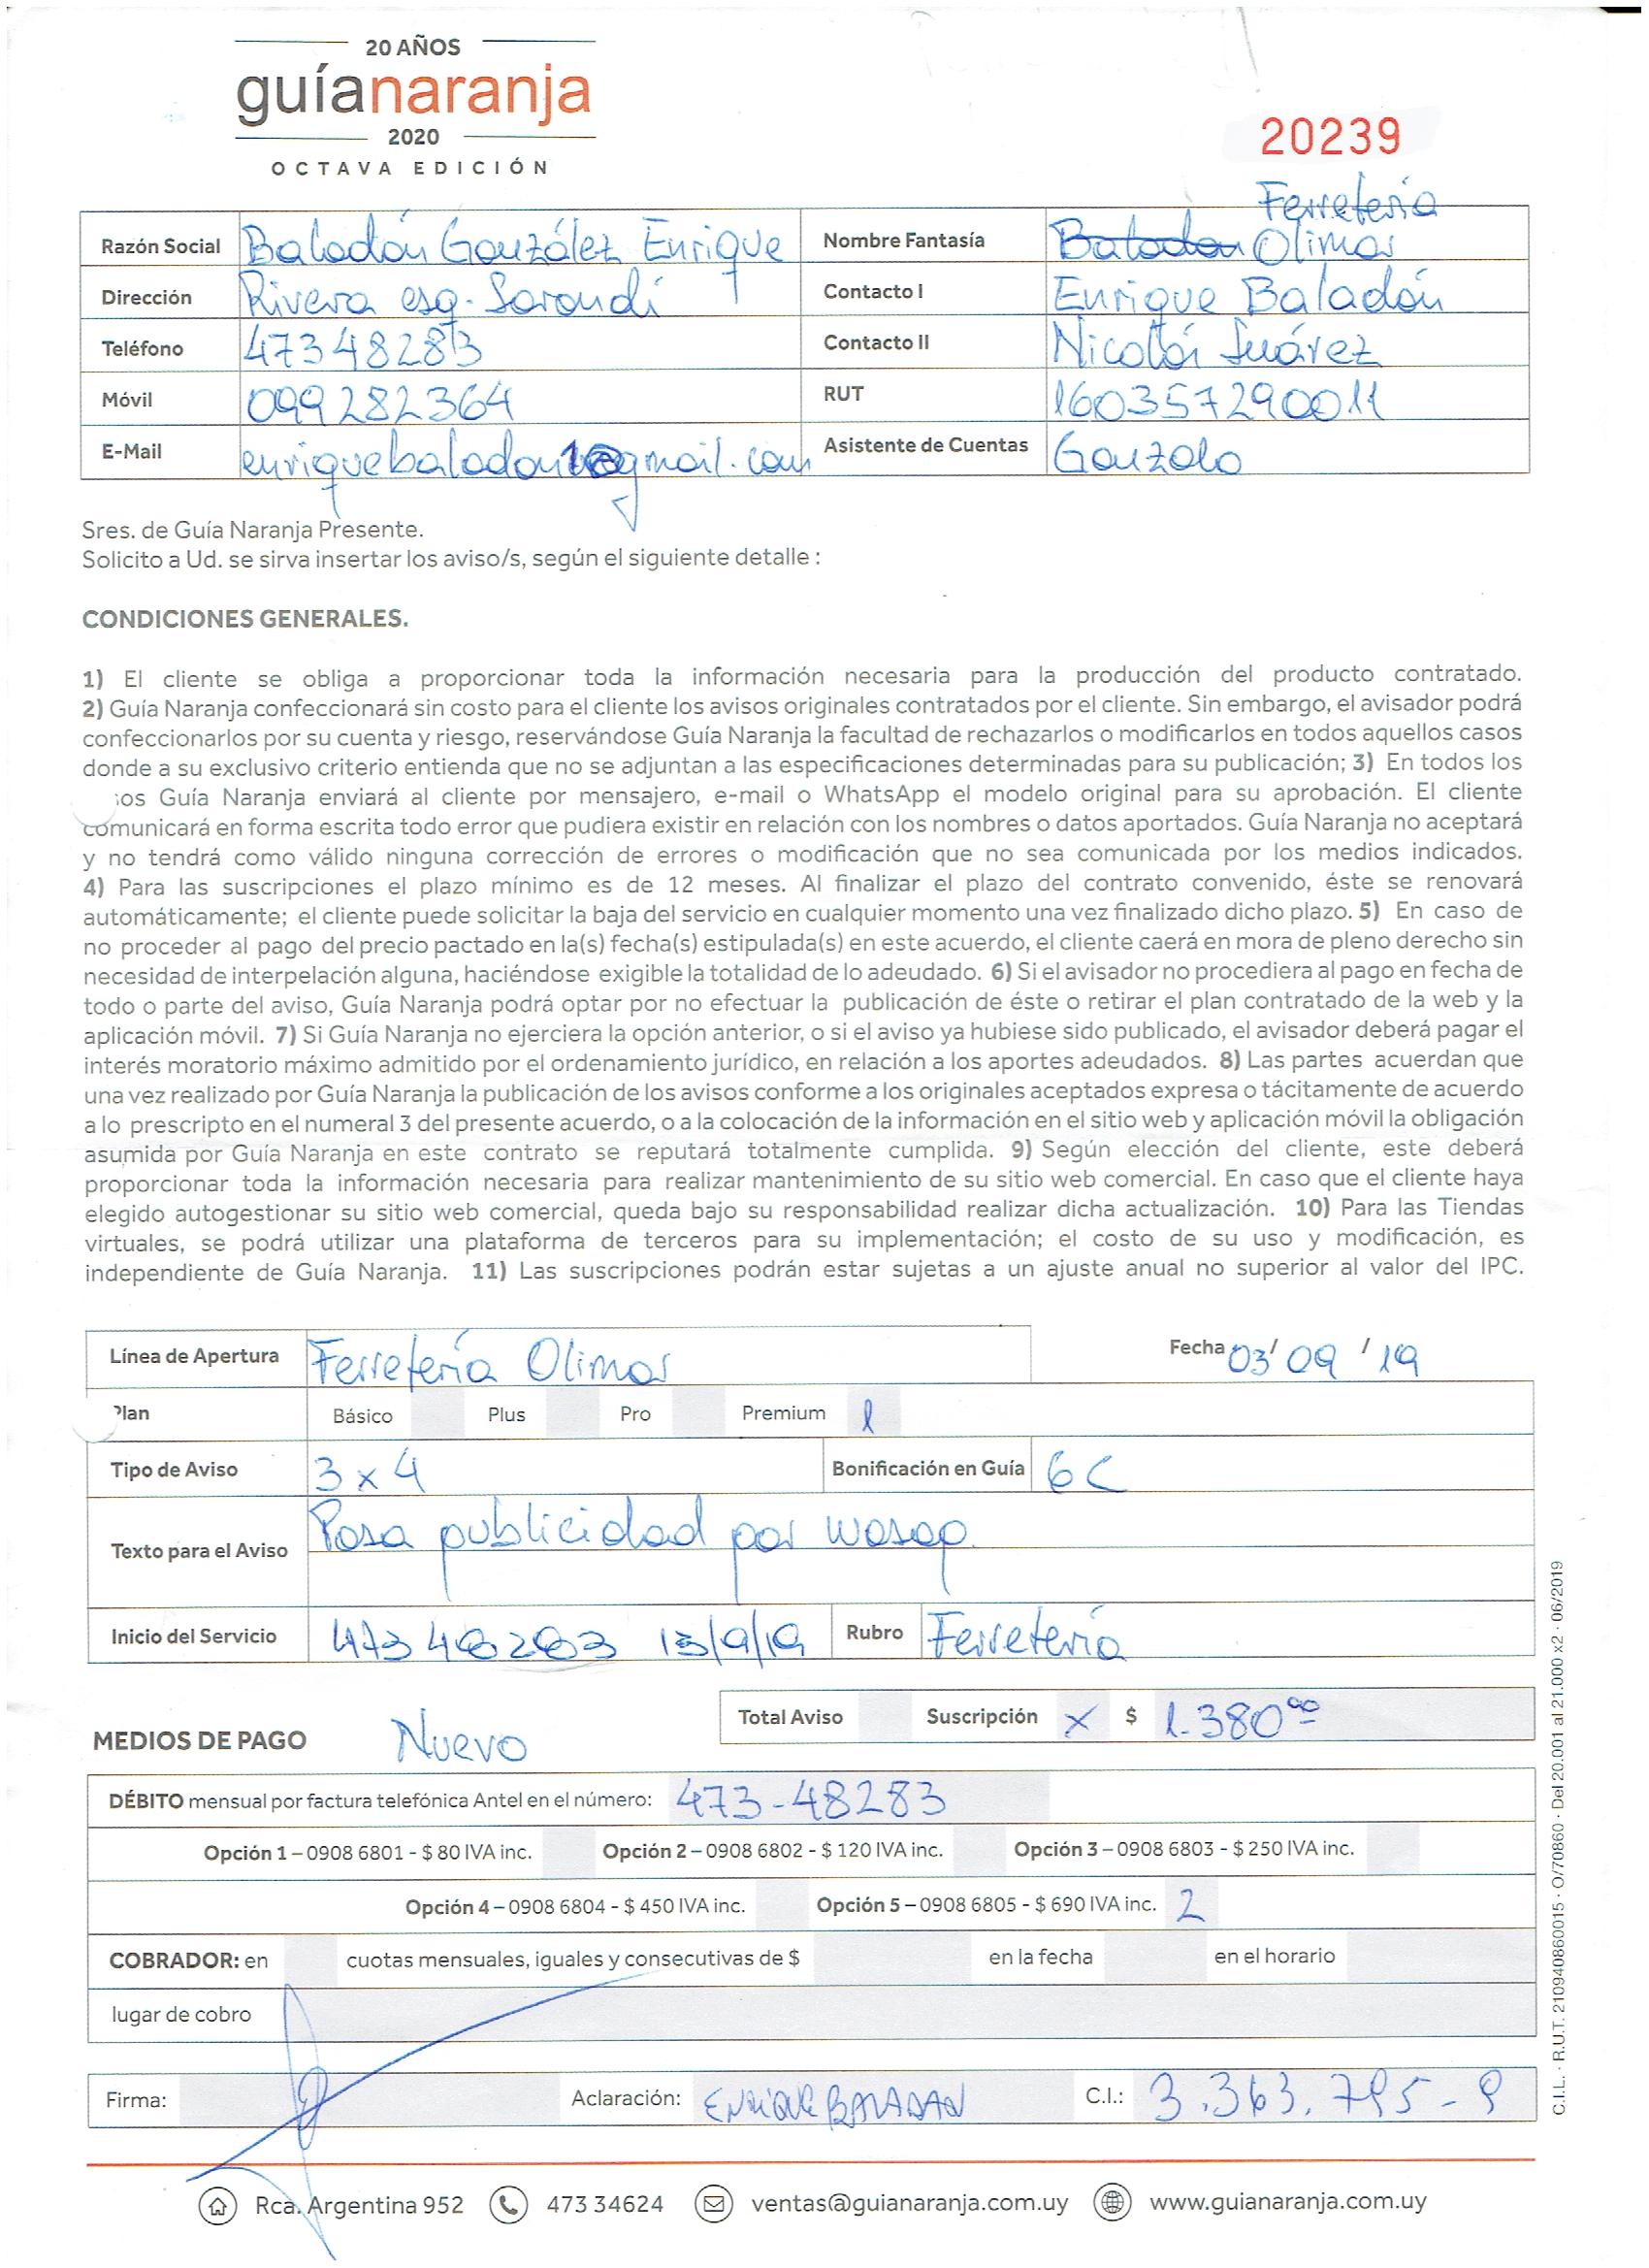 20 AÑOS
guíanaranja
2020
OCTAVA EDICIÓN
20239
Razón Social Baladón González Enrique Nombre Fantasía Ferretería Olimar
Dirección Rivera esq. Sarandí Contacto I Enrique Baladón
Teléfono 47348283 Contacto II Nicolás Suárez
Móvil 099282364 RUT 160357290011
E-Mail enriquebaladon1@gmail.com Asistente de Cuentas Gonzalo
Sres. de Guía Naranja Presente.
Solicito a Ud. se sirva insertar los aviso/s, según el siguiente detalle :
CONDICIONES GENERALES.
1) El cliente se obliga a proporcionar toda la información necesaria para la producción del producto contratado.
2) Guía Naranja confeccionará sin costo para el cliente los avisos originales contratados por el cliente. Sin embargo, el avisador podrá
confeccionarlos por su cuenta y riesgo, reservándose Guía Naranja la facultad de rechazarlos o modificarlos en todos aquellos casos
donde a su exclusivo criterio entienda que no se adjuntan a las especificaciones determinadas para su publicación; 3) En todos los
os Guía Naranja enviará al cliente por mensajero, e-mail o WhatsApp el modelo original para su aprobación. El cliente
comunicará en forma escrita todo error que pudiera existir en relación con los nombres o datos aportados. Guía Naranja no aceptará
y no tendrá como válido ninguna corrección de errores o modificación que no sea comunicada por los medios indicados.
4) Para las suscripciones el plazo mínimo es de 12 meses. Al finalizar el plazo del contrato convenido, éste se renovará
automáticamente; el cliente puede solicitar la baja del servicio en cualquier momento una vez finalizado dicho plazo. 5) En caso de
no proceder al pago del precio pactado en la(s) fecha(s) estipulada(s) en este acuerdo, el cliente caerá en mora de pleno derecho sin
necesidad de interpelación alguna, haciéndose exigible la totalidad de lo adeudado. 6) Si el avisador no procediera al pago en fecha de
todo o parte del aviso, Guía Naranja podrá optar por no efectuar la publicación de éste o retirar el plan contratado de la web y la
aplicación móvil. 7) Si Guía Naranja no ejerciera la opción anterior, o si el aviso ya hubiese sido publicado, el avisador deberá pagar el
interés moratorio máximo admitido por el ordenamiento jurídico, en relación a los aportes adeudados. 8) Las partes acuerdan que
una vez realizado por Guía Naranja la publicación de los avisos conforme a los originales aceptados expresa o tácitamente de acuerdo
a lo prescripto en el numeral 3 del presente acuerdo, o a la colocación de la información en el sitio web y aplicación móvil la obligación
asumida por Guía Naranja en este contrato se reputará totalmente cumplida. 9) Según elección del cliente, este deberá
proporcionar toda la información necesaria para realizar mantenimiento de su sitio web comercial. En caso que el cliente haya
elegido autogestionar su sitio web comercial, queda bajo su responsabilidad realizar dicha actualización. 10) Para las Tiendas
virtuales, se podrá utilizar una plataforma de terceros para su implementación; el costo de su uso y modificación, es
independiente de Guía Naranja. 11) Las suscripciones podrán estar sujetas a un ajuste anual no superior al valor del IPC.
Línea de Apertura Ferretería Olimar Fecha 03/ 09 / 19
Plan Básico Plus Pro Premium 1
Tipo de Aviso 3 x 4 Bonificación en Guía 6C
Texto para el Aviso Pasa publicidad por wasap
Inicio del Servicio 47348283 13/9/19 Rubro Ferretería
Total Aviso Suscripción X $ 1.380⁰⁰
MEDIOS DE PAGO Nuevo
DÉBITO mensual por factura telefónica Antel en el número: 473-48283
Opción 1 – 0908 6801 - $ 80 IVA inc. Opción 2 – 0908 6802 - $ 120 IVA inc. Opción 3 – 0908 6803 - $ 250 IVA inc.
Opción 4 – 0908 6804 - $ 450 IVA inc. Opción 5 – 0908 6805 - $ 690 IVA inc. 2
COBRADOR: en cuotas mensuales, iguales y consecutivas de $ en la fecha en el horario
lugar de cobro
Firma: Aclaración: ENRIQUE BALADAN C.I.: 3.363.795-9
Rca. Argentina 952 473 34624 ventas@guianaranja.com.uy www.guianaranja.com.uy
C.I.L. · R.U.T. 210940860015 · O/70860 · Del 20.001 al 21.000 x2 · 06/2019